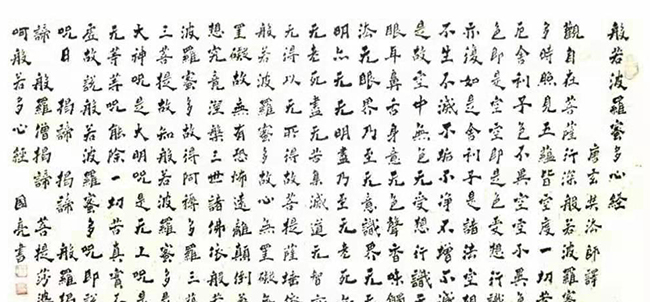 般若波羅蜜多心經
唐玄奘法師譯
觀自在菩薩行深般若波羅
多時照見五蘊皆空度一切苦
厄舍利子色不異空空不異
色即是空空即是色受想行
亦復如是舍利子是諸法空
不生不滅不垢不淨不增不
是故空中無色无受想行識
眼耳鼻舌身意无色聲香味觸
法无眼界乃至无意識界无
明亦无无明盡乃至无老死
无老死盡无苦集滅道无智
无得以无所得故菩提薩埵依
般若波羅蜜多故心無罣礙无
罣礙故無有恐怖遠離顛倒
想究竟涅槃三世諸佛依般若
波羅蜜多故得阿耨多羅三
三菩提故知般若波羅蜜多是
大神呪是大明呪是无上呪
无等等呪能除一切苦真實不
虛故說般若波羅蜜多呪即說
呪曰 揭諦 揭諦 般羅揭
諦 般羅僧揭諦 菩提莎婆
呵般若多心經 國亮書